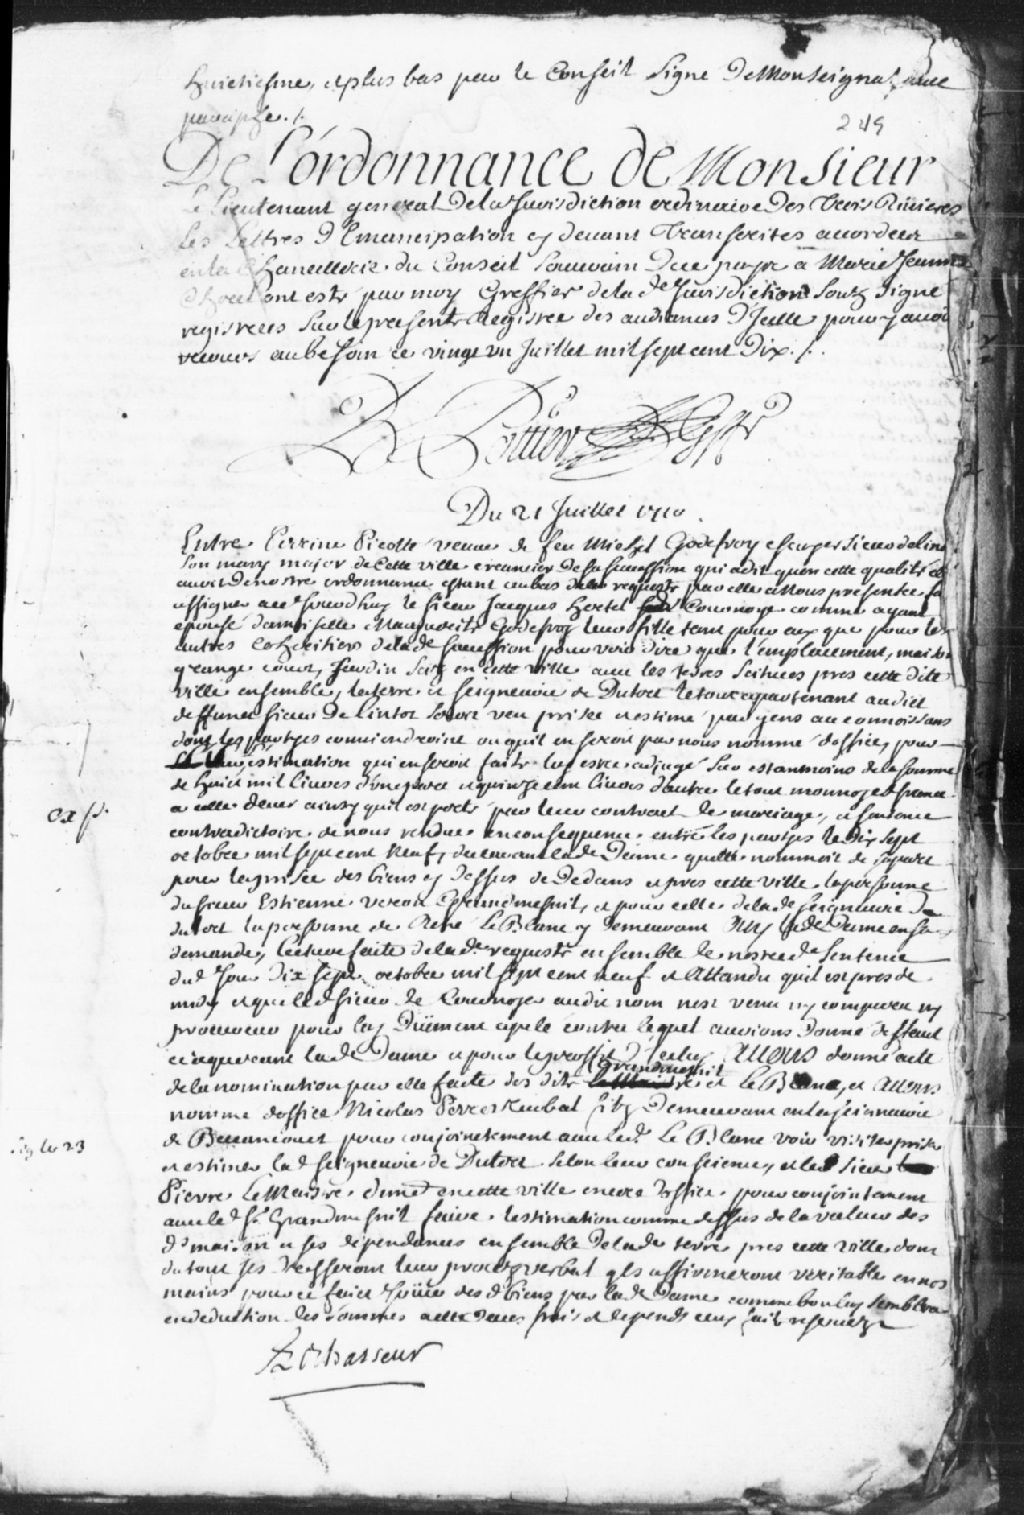 huictiesme, et plus bas par le Conseil signe De Monseignat avec
paraphe ./.
249
De L'ordonnance de Monsieur
Le Lieutenant general De la Jurisdiction ordinaire Des Trois Rivieres
Les Lettres D'Emancipation cy devant Transcrites accordeez
en la Chancellerie du Conseil Souverain De ce pays a Marie Jeanne
ont esté par moy Greffier de la de Jurisdiction soubz signé
registrees sur le present Registre des audiances D'Icelle pour y avoir
recours au besoin ce vingt un Juillet mil sept cent Dix ./.
Pottier Gffr
Du 21 Juillet 1710.
Entre Perrine Picotté veuve de feu Michel Godefroy escuyer sieur de lin
son mary major de Cette ville creanciere de sa succession qui a dit qu'en cette qualité
avoir de nostre ordonnance estant au bas de la requeste par elle a Nous presentée
assigner au jourdhuy le sieur Jacques Hertel Cournoyer comme ayant
epousé damoiselle Marguerite Godefroy leur fille tant pour eux que pour les
autres Coheritiers de la de succession pour voir dire que l'emplacement, maison
grange cour, Jardin scitz en cette ville avec les terres scituees pres cette dite
ville ensemble, la terre et seigneurie de Dutort le tout appartenant audict
deffunct sieur De Lintot soient veu prisée et estimé par gens a ce connoissans
dont les partyes conviendroient ou quil en seroit par nous nommé d'office, pour
estimation qui en seroit faite luy estre adjugé sur estantmoins de la somme
de huict mil livres d'une part et quinze cent livres d'autre le tout monnoye de france
a elle deue ainsy quil est porté par leur contract de mariage, et sentence
exp.
contradictoire de nous rendue en consequence entre les partyes le Dix sept
octobre mil sept cent Neuf, declarant la de Dame quelle nommoit de sa part
pour la prisée des biens cy dessus de Dedans et pres cette ville la personne
du sieur Estienne veron Grandmesnil, et pour celle de la de seigneurie de
dutort la personne de René Le Blanc y demeurant Ouy la de Dame en sa
demande, lecture faite de la de requeste ensemble de nostre de sentence
dud jour Dix sept octobre mil sept cent neuf et Attendu quil est pres de
midy et que led sieur de Cournoyer audit nom nest venu ny comparu ny
procureur pour luy Düement apelé contre lequel avions donné deffaut
ce requerant la de Dame et pour le proffit d'iceluy AVONS donné acte
de la nomination par elle faite des dits Grandmesnil et Le Blanc, et AVONS
nommé d'office Nicolas Perrot demeurant en la seigneurie
de Becancourt pour conjointement avec led. Le Blanc voir visiter priser
sig le 23
et estimer lad seigneurie de Dutort selon leur conscience, et le sieur
Pierre Le Maistre demt en cette ville encore d'office pour conjointement
avec led sr. Grandmesnil faire l'estimation comme dessus de la valeur des
ds maison et ses dependances ensemble de la de terre pres cette ville dont
du tout ils dresseront leur procez verbal qls affirmeront veritable en nos
mains pour ce faict des d biens par la de Dame comme bon luy semblera
en deduction des sommes a elle deues frais et depends
Lechasseur